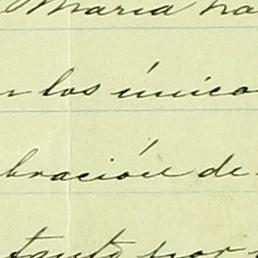 Maria ha
n los único
bración de
tanto por